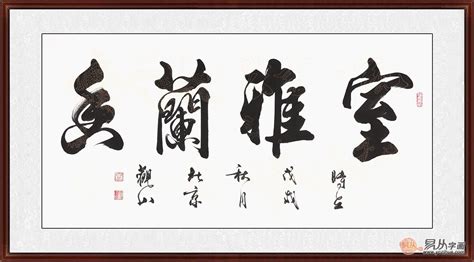 室雅蘭香
時在
戊戌
秋月
京
觀山
易从字画
www.yczihua.com